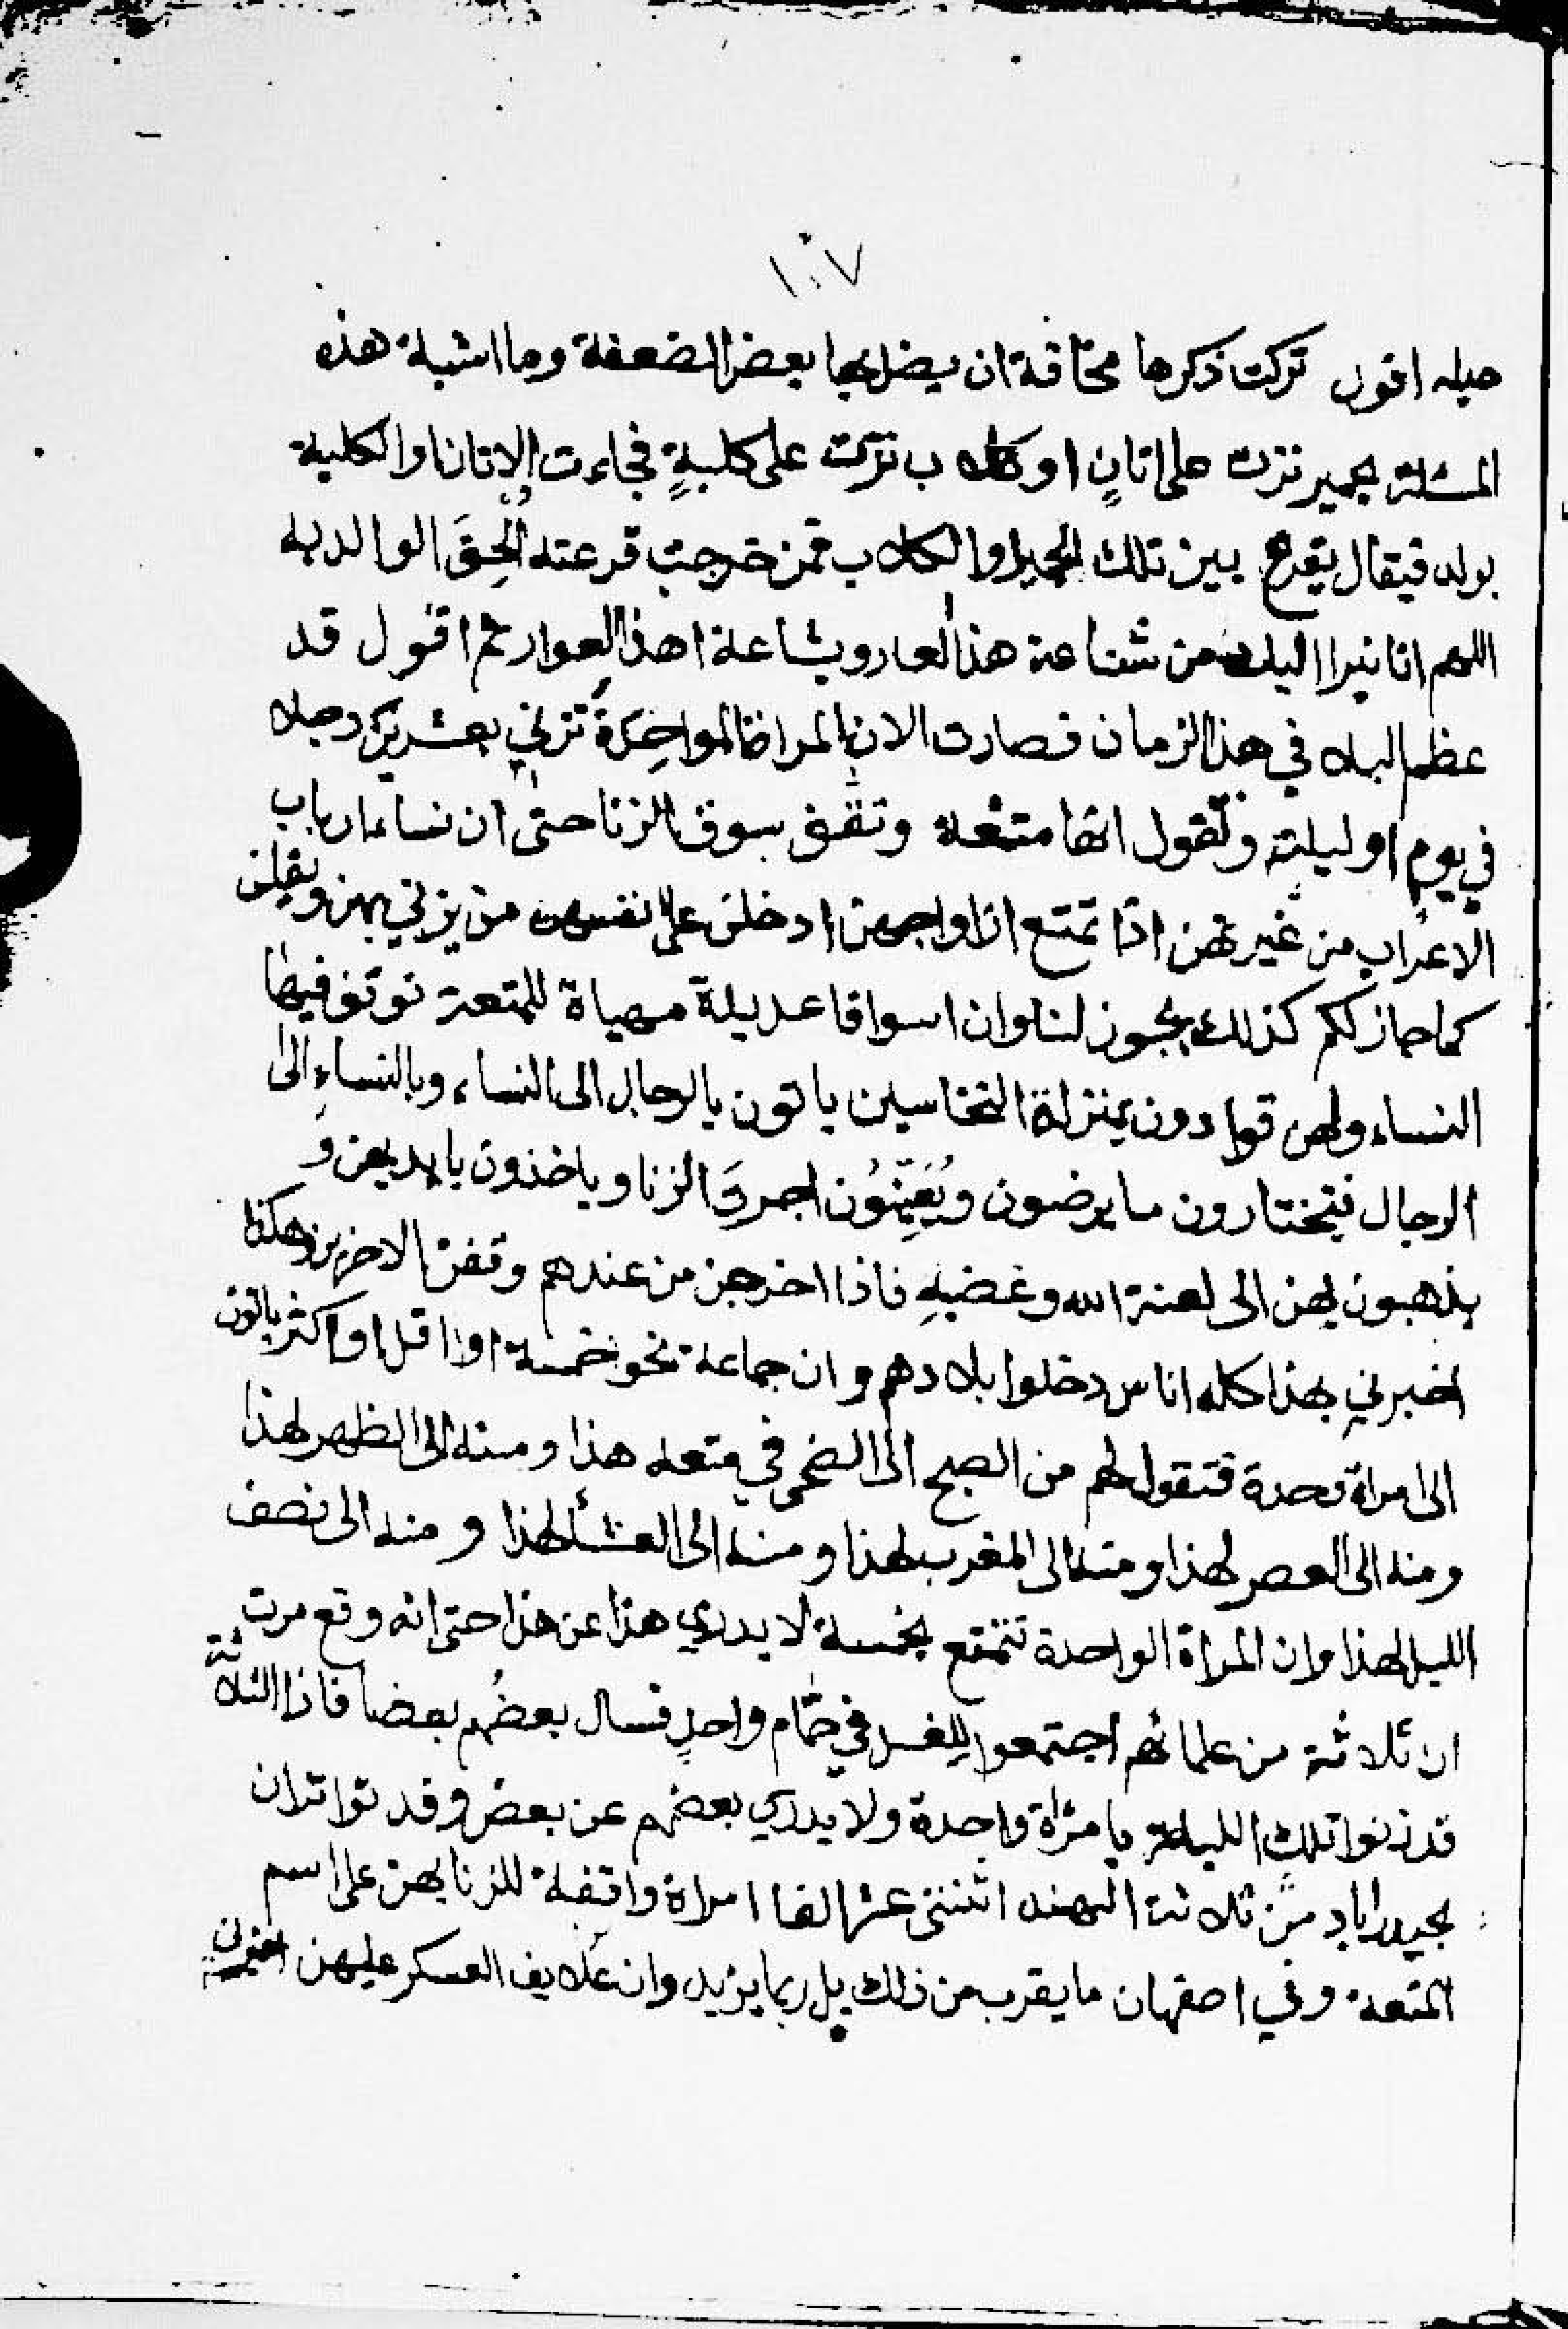 ١٠٧
حيله اقول تركت ذكرها مخافة ان يضل بها بعض الضعفة وما اشبة هذه
المسئلة بحمير نزت على اتانٍ او كلاب نزت على كلبةٍ فجاءت الاتان او الكلبة
بولد فيقال يقرع بين تلك الحمير او الكلاب فمن خرجت قرعته اُلحِقَ الوالد به
اللهم انا نبرا اليك من شناعة هذا العار وبشاعة اهذا العوار ثم اقول قد
عظم البلاء في هذا الزمان فصارت الان المراة الواحِدَة تزني بعشرين رجلا
في يوم او ليلة وتقول انها متعة وتقف سوق الزنا حتى ان نساء ارباب
الاعراب من غيرتهن اذا تمتع ازاواجهن ادخلن على انفسهن من يزني بهن ويقلن
كما جاز لكم كذلك يجوز لنا وان اسواقا عديدة مهياة للمتعة توقف فيها
النساء ولهن قوادون بمنزلة النخاسين ياتون بالرجال الى النساء، وبالنساءِ الى
الرجال فيختارون ما يرضون ويُعَيِّنُون اجرة الزنا وياخذون بايديهن و
يذهبون بهن الى لعنة الله وغضبهِ فاذا اخرجن من عندهم وقفن لاخرين وهكذا
اخبرني بهذا كله اناس دخلوا بلادهم وان جماعة نحو خمسة او اقل او اكثر ياتون
الى امراة وحدة فتقول لهم من الصبح الى الضحى في متعه هذا ومنه الى الظهر لهذا
ومنه الى العصر لهذا ومنه الى المغرب لهذا ومنه الى العشأ لهذا ومنه الى نصف
الليل لهذا وان المراة الواحدة تتمتع بخمسة لا يدري هذا عن هذا حتى انه وقع مرت
ان ثلاثة من علمائهم اجتمعوا للغسل في حمّام واحدٍ فسال بعضُهم بعضا فاذا الثلاثة
قد زنوا تلك الليلة بامراة واحدة ولا يدري بعضهم عن بعض وقد تواتر ان
بحيدراباد من ثلاثة الهند اثنتى عشر الفا امراة واقفة للزنا بهن على اسم
المتعة وفي اصفهان ما يقرب من ذلك بل ربما يزيد وان علايف العسكر عليهن